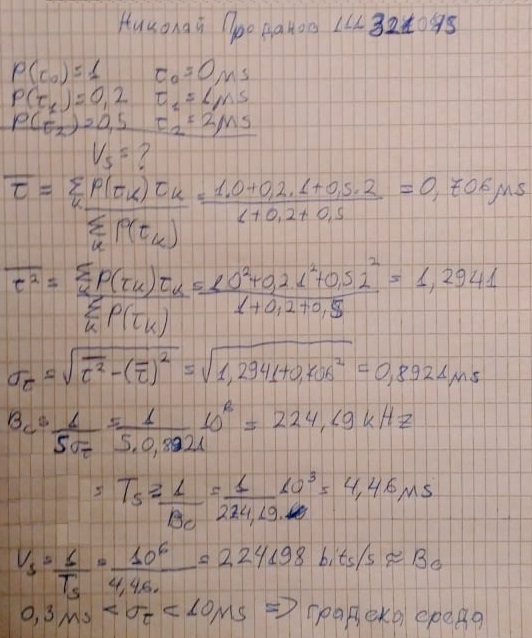 Николай Проданов
P(τ₀)=1 τ₀=0μs
P(τ₁)=0,2 τ₁=1μs
P(τ₂)=0,5 τ₂=2μs
Vs=?
τ̅ = Σₖ P(τₖ)τₖ / Σₖ P(τₖ) = 1.0+0,2.1+0,5.2 / 1+0,2+0,5 = 0,706μs
τ²̅ = Σₖ P(τₖ)τₖ / Σₖ P(τₖ) = 1 0²+0,2 1²+0,5 2² / 1+0,2+0,5 = 1,2941
στ = √(τ²̅ -(τ̅)²) = √(1,2941+0,706²) = 0,8921μs
Bc = 1 / 5στ = 1 / 5.0,8921 10⁶ = 224,19 kHz
= Ts ≥ 1 / Bc = 1 / 224,19 10³ = 4,46μs
Vs = 1 / Ts = 10⁶ / 4,46. = 224198 bits/s ≈ Bc
0,3μs < στ < 10μs => градска среда